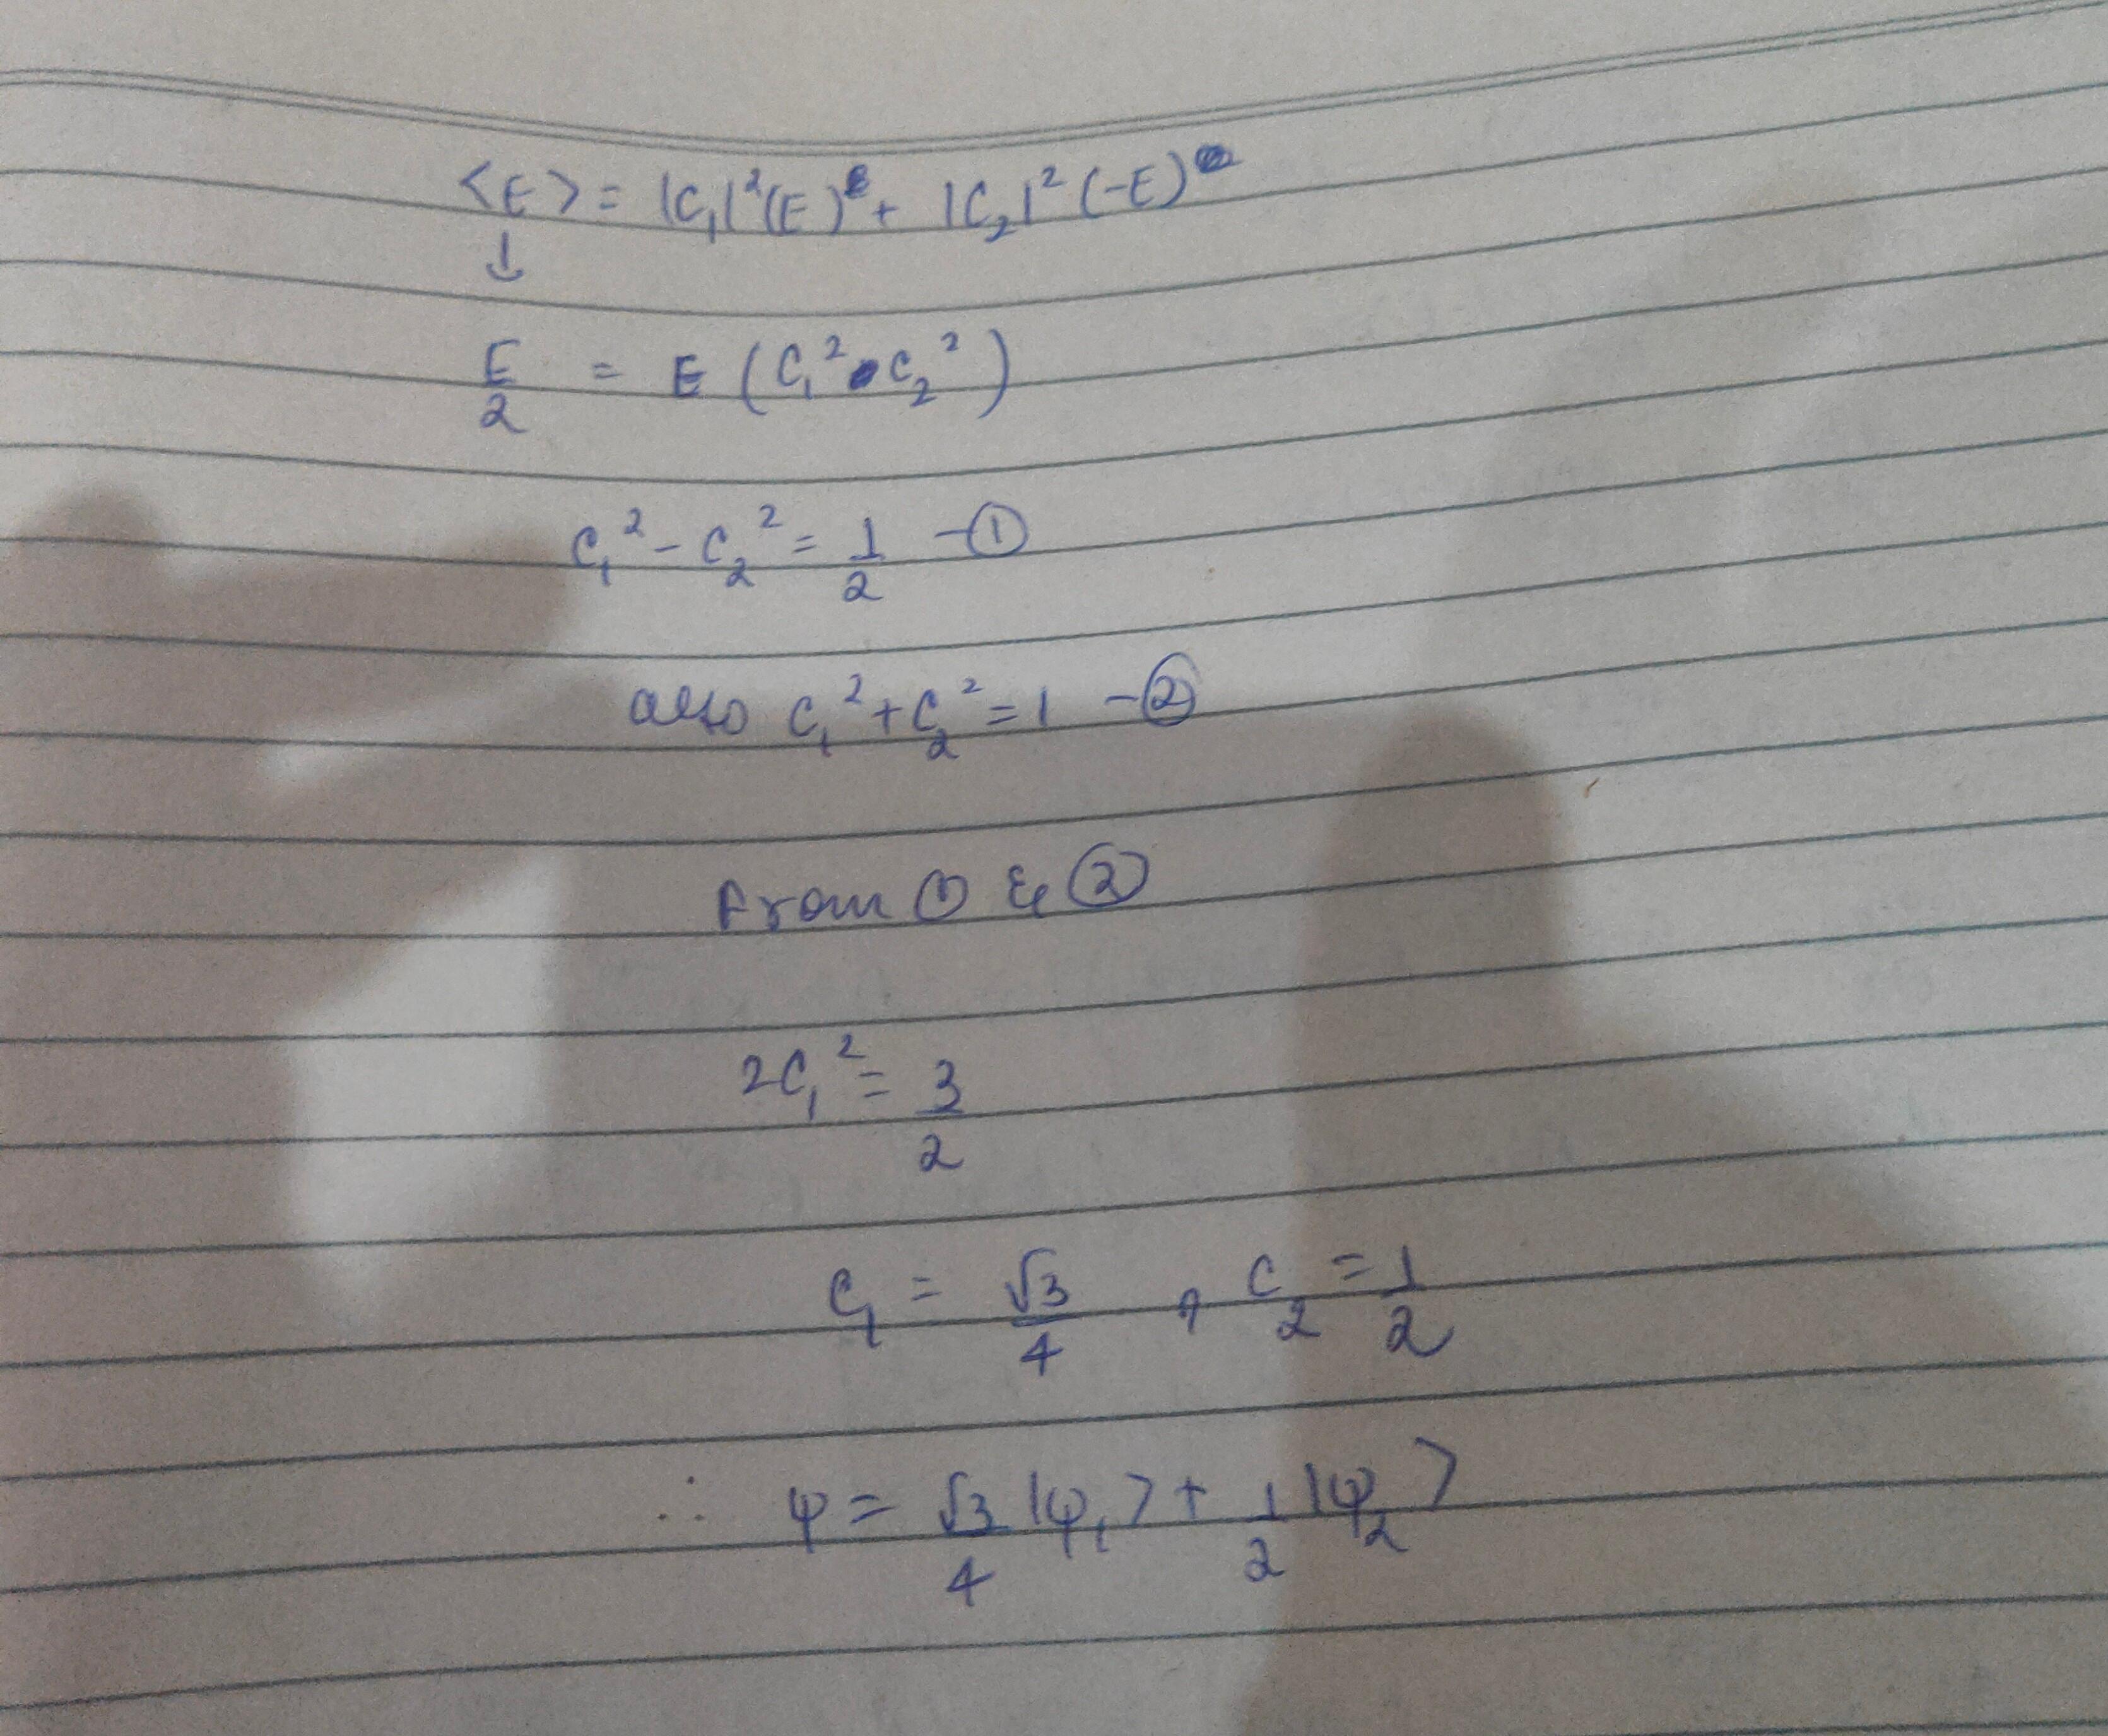 <E> = |C₁|²(E) + |C₂|²(-E)
↓
E/2 = E (C₁² C₂²)
C₁² - C₂² = 1/2 - ①
also C₁² + C₂² = 1 - ②
From ① & ②
2C₁² = 3/2
C₁ = √3/4 , C₂ = 1/2
∴ ψ = √3/4 |ψ₁> + 1/2 |ψ₂>